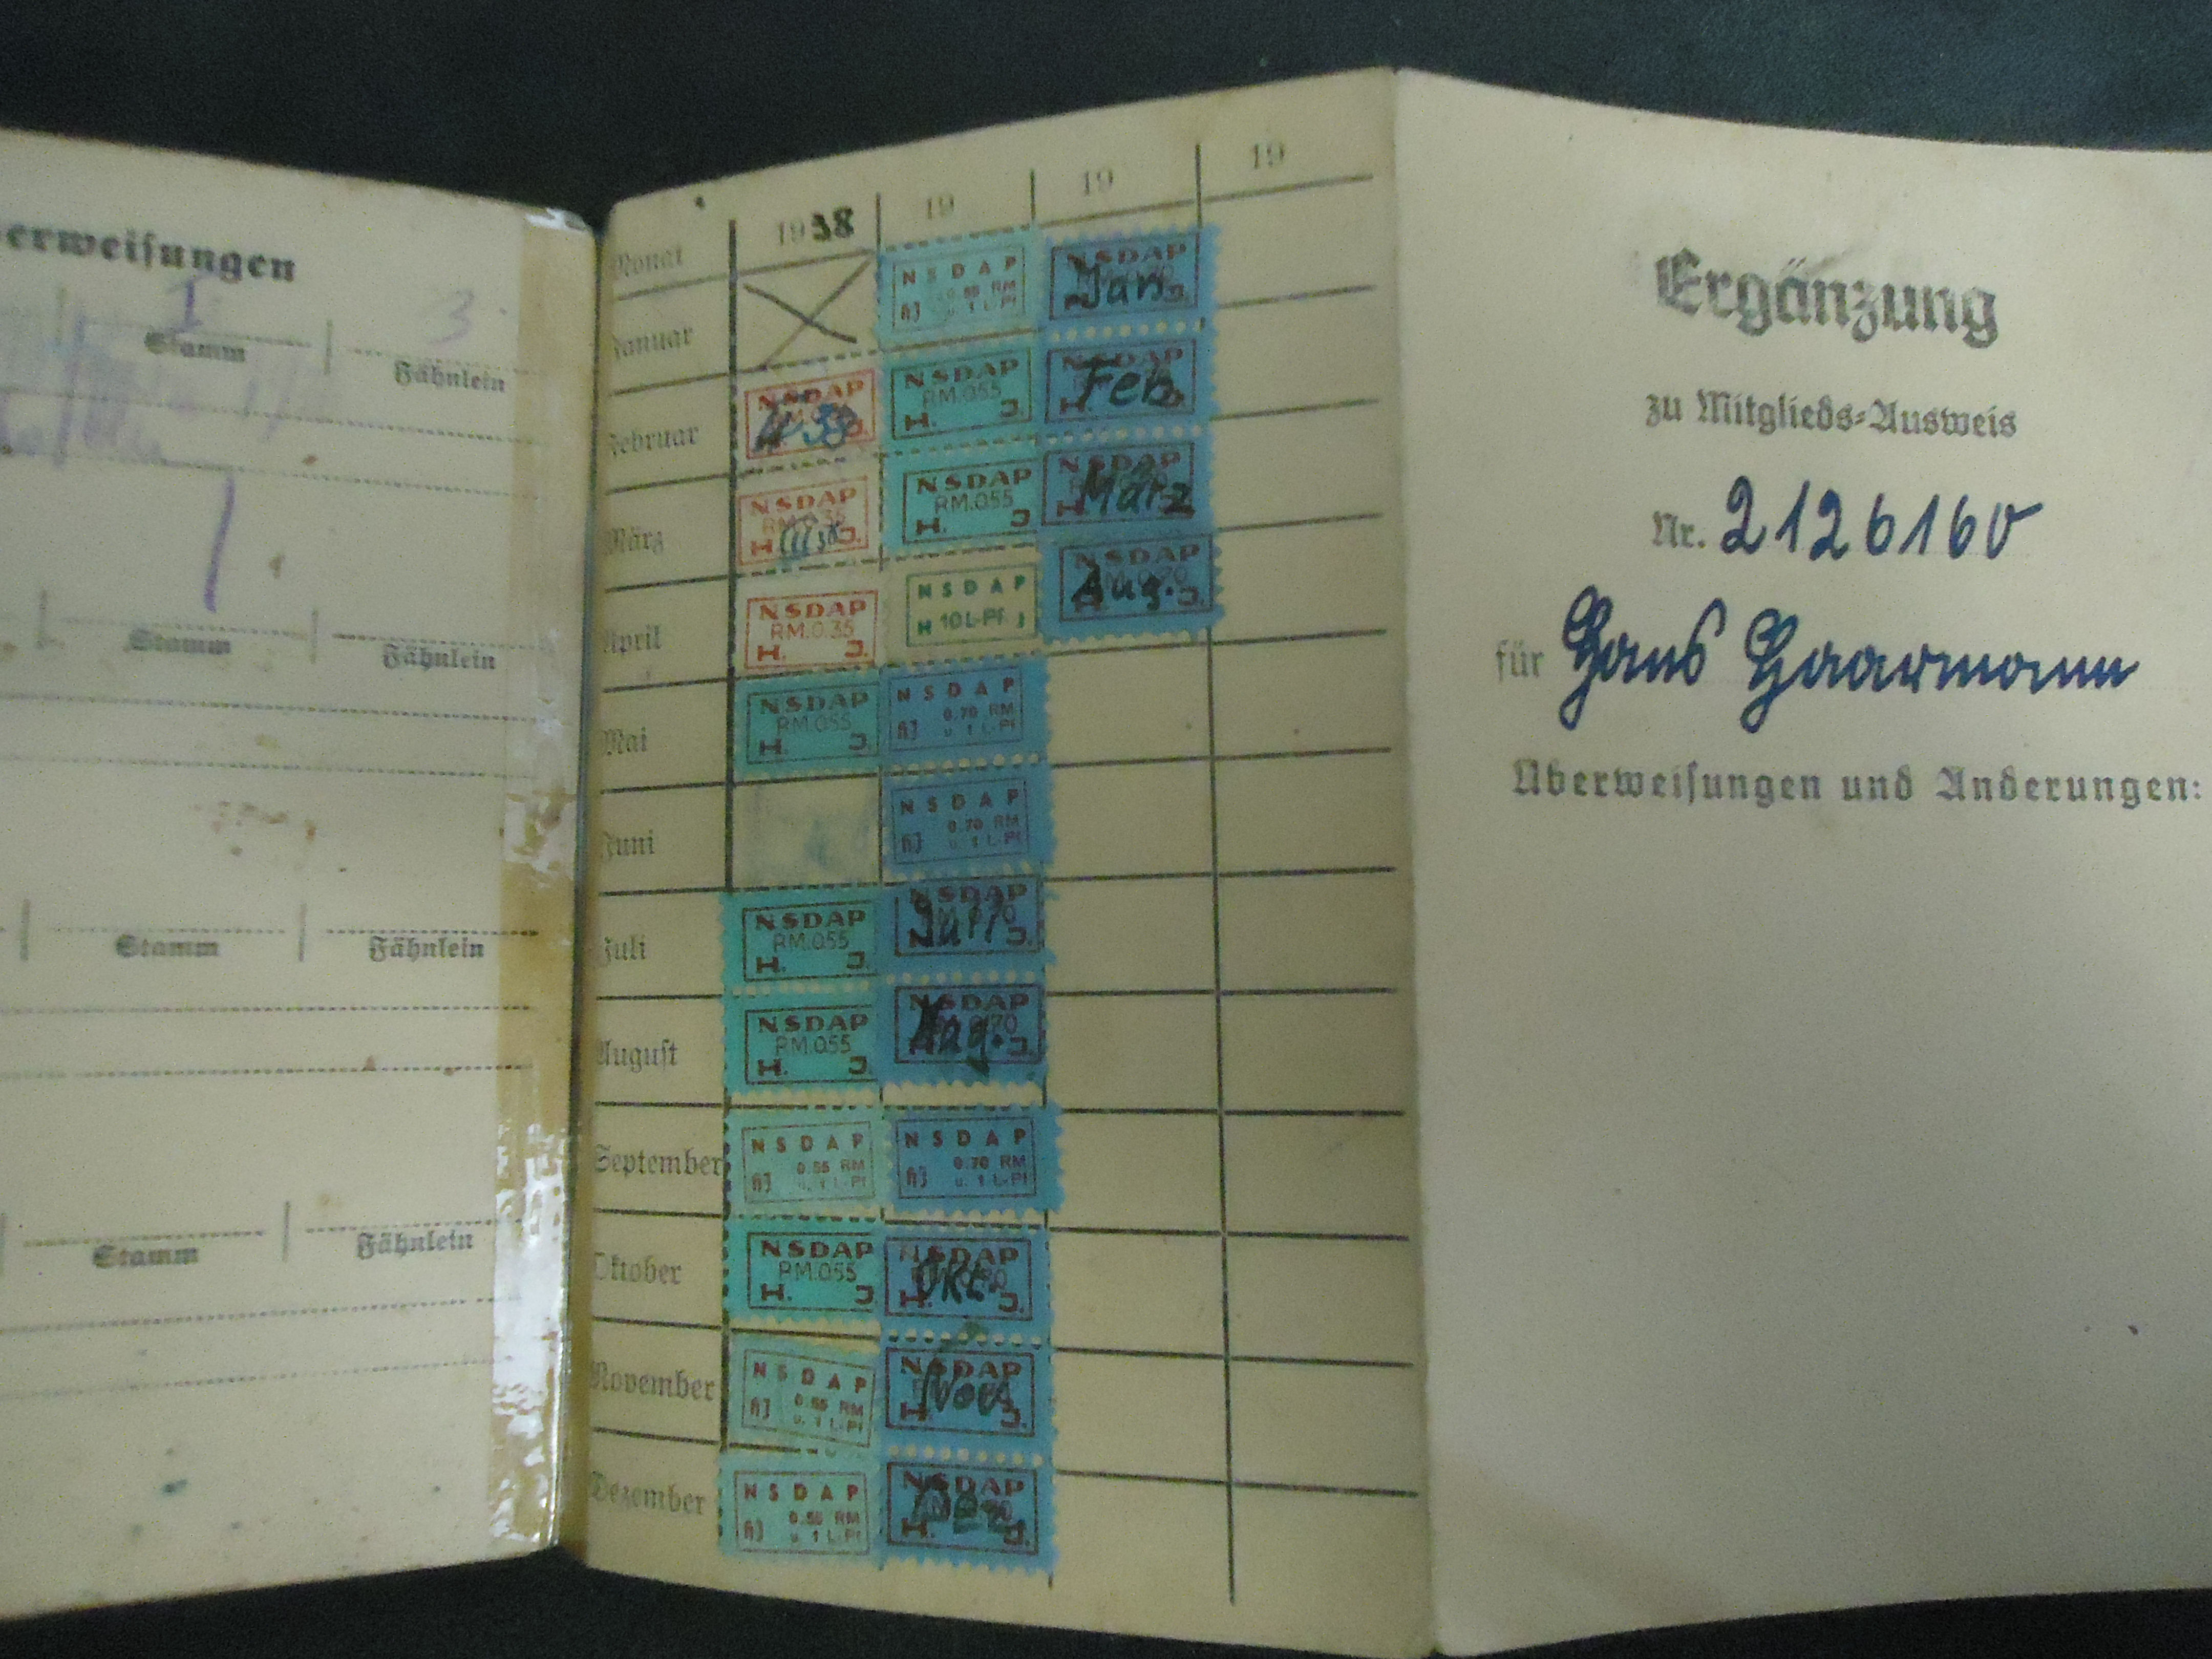 erweisungen
I 3
Stamm Fähnlein
Stamm Fähnlein
Stamm Fähnlein
Stamm Fähnlein
Monat 1938 19 19 19
Januar NSDAP 0.55 RM HJ u. 1 L-Pf NSDAP Jan. J.
Februar NSDAP H. J. NSDAP RM.0.55 H. J. NSDAP Feb. H. J.
März NSDAP RM.0.35 H. J. NSDAP RM.0.55 H. J. NSDAP März H.
April NSDAP RM.0.35 H. J. NSDAP H 10 L-Pf J NSDAP Aug. H. J.
Mai NSDAP RM.0.55 H. J. NSDAP 0.70 RM HJ u. 1 L-Pf
Juni NSDAP 0.70 RM HJ u. 1 L-Pf
Juli NSDAP RM.0.55 H. J. NSDAP Juli J.
August NSDAP RM.0.55 H. J. NSDAP Aug. H. J.
September NSDAP 0.55 RM HJ u. 1 L-Pf NSDAP 0.70 RM HJ u. 1 L-Pf
Oktober NSDAP RM.0.55 H. J. NSDAP Okt. H. J.
November NSDAP 0.55 RM HJ u. 1 L-Pf NSDAP Nov. H. J.
Dezember NSDAP 0.55 RM HJ u. 1 L-Pf NSDAP Dez. H. J.
Ergänzung
zu Mitglieds-Ausweis
Nr. 2126160
für Hans Haarmann
Überweisungen und Änderungen: